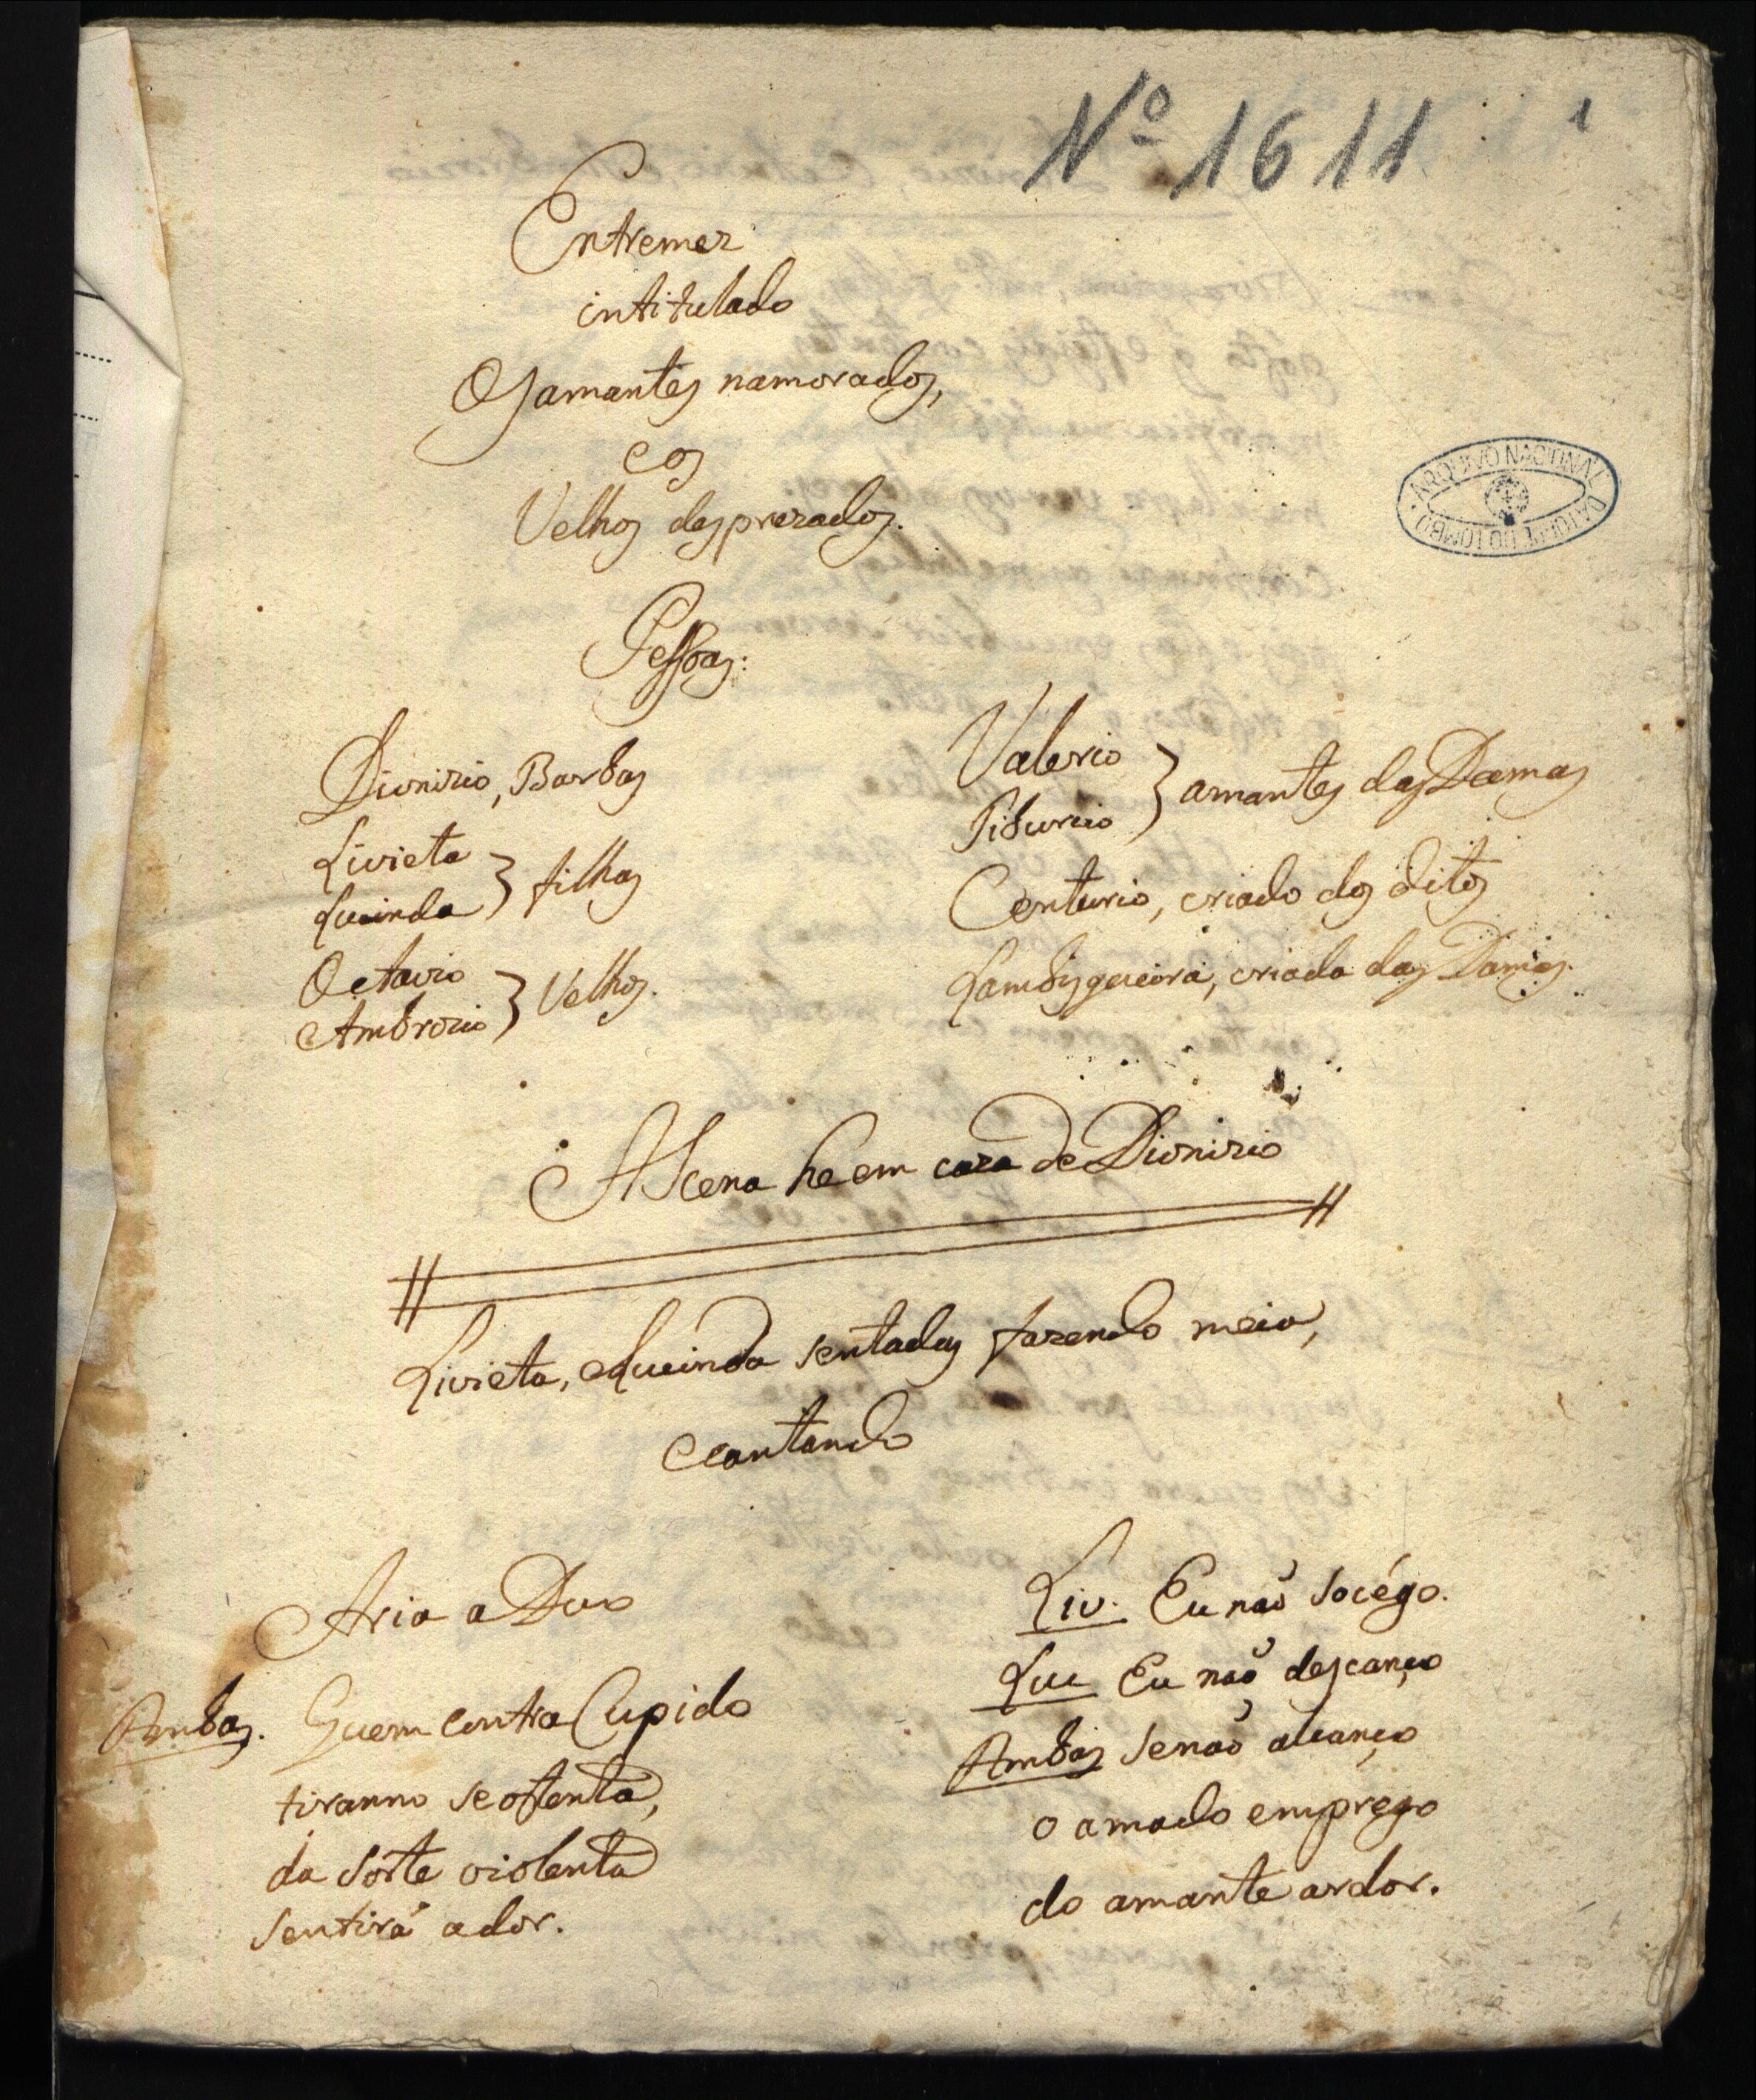 Nº 1611
1
Entremez
intitulado
Os amantes namorados,
e os
Velhos desprezados.
ARQUIVO NACIONAL DA TORRE DO TOMBO
Pessoas:
Dionizio, Barbas
Livieta
Lucinda } filhas
Octavio
Ambrozio } Velhos.
Valerio
Tiburcio } amantes das Damas
Centurio, criado dos ditos
Lambisgueira, criada das Damas.
A Scena he em caza de Dionizio
Livieta, e Lucinda sentadas fazendo meia,
e cantando
Aria a Duo
Ambas. Quem contra Cupido
tiranno se ostenta,
da sorte violenta
sentirá a dor.
Liv. Eu naõ socégo.
Luc Eu naõ descanço
Ambas Se naõ alcanço
o amado emprego
do amante ardor.